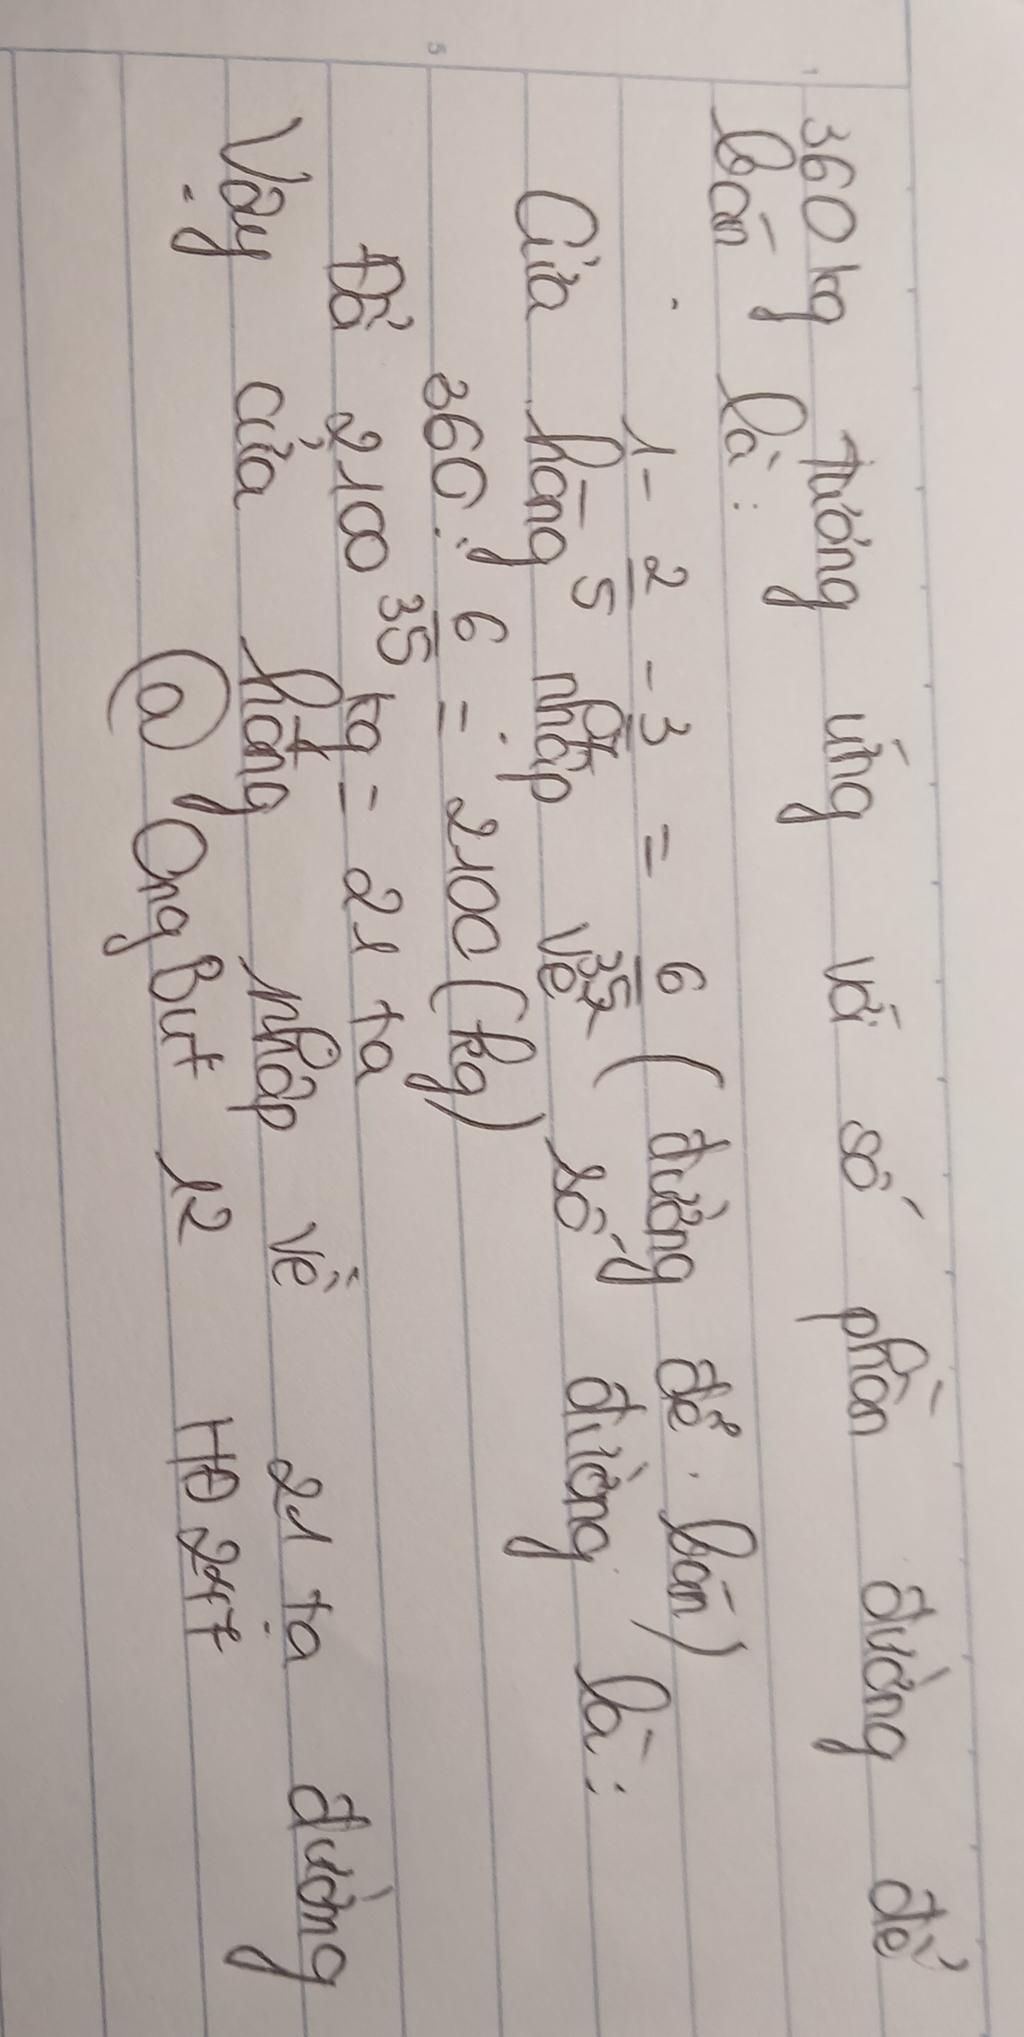 360 kg tương ứng với số phần đường để
bán là:
1 - 2/5 - 3/7 = 6/35 (đường để bán)
Cửa hàng nhập về số đường là:
360 : 6/35 = 2100 (kg)
Đổ 2100 kg = 21 tạ
Vậy cửa hàng nhập về 21 tạ đường
@ Ong But 12 HĐ 247